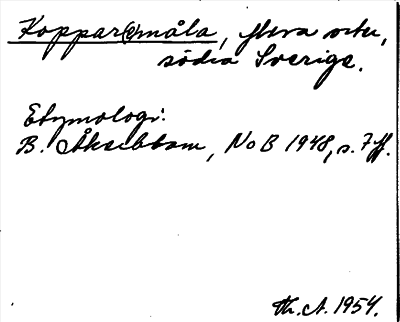 Koppar(e)måla, flera orter,
södra Sverige.
Etymologi:
B. Åkerblom, NoB 1948, s. 7 ff.
Th. A. 1954.